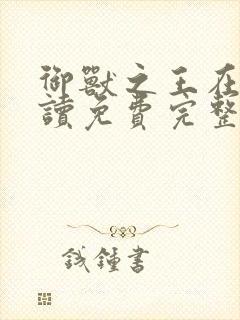 御獸之王在
讀免費完整
錢鍾書